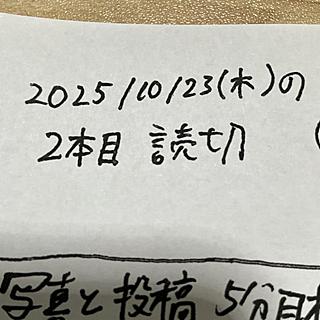 2025/10/23(木)の
2本目 読切
写真と投稿 5分